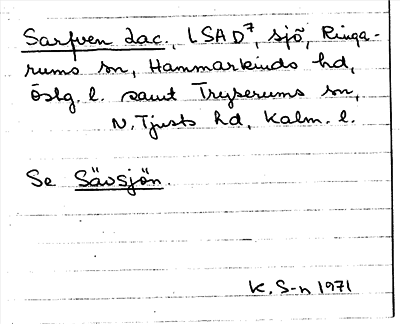 Sarfven Lac., LSAD7, sjö, Ringa-
rums sn, Hammarkinds hd,
Östg. l. samt Tryserums sn,
N. Tjusts hd, Kalm. l.
Se Sävsjön.
K. S-n 1971